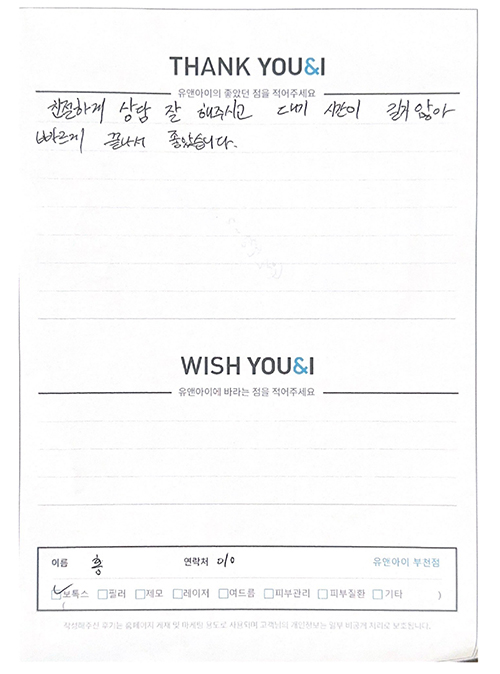 THANK YOU&I
유앤아이의 좋았던 점을 적어주세요
친절하게 상담 잘 해주시고 대기 시간이 길지 않아
빠르게 끝나서 좋았습니다.
WISH YOU&I
유앤아이에 바라는 점을 적어주세요
이름 홍 연락처 010 유앤아이 부천점
보톡스 필러 제모 레이저 여드름 피부관리 피부질환 기타 )
작성해주신 후기는 홈페이지 게재 및 마케팅 용도로 사용되며 고객님의 개인정보는 일부 비공개 처리로 보호됩니다.